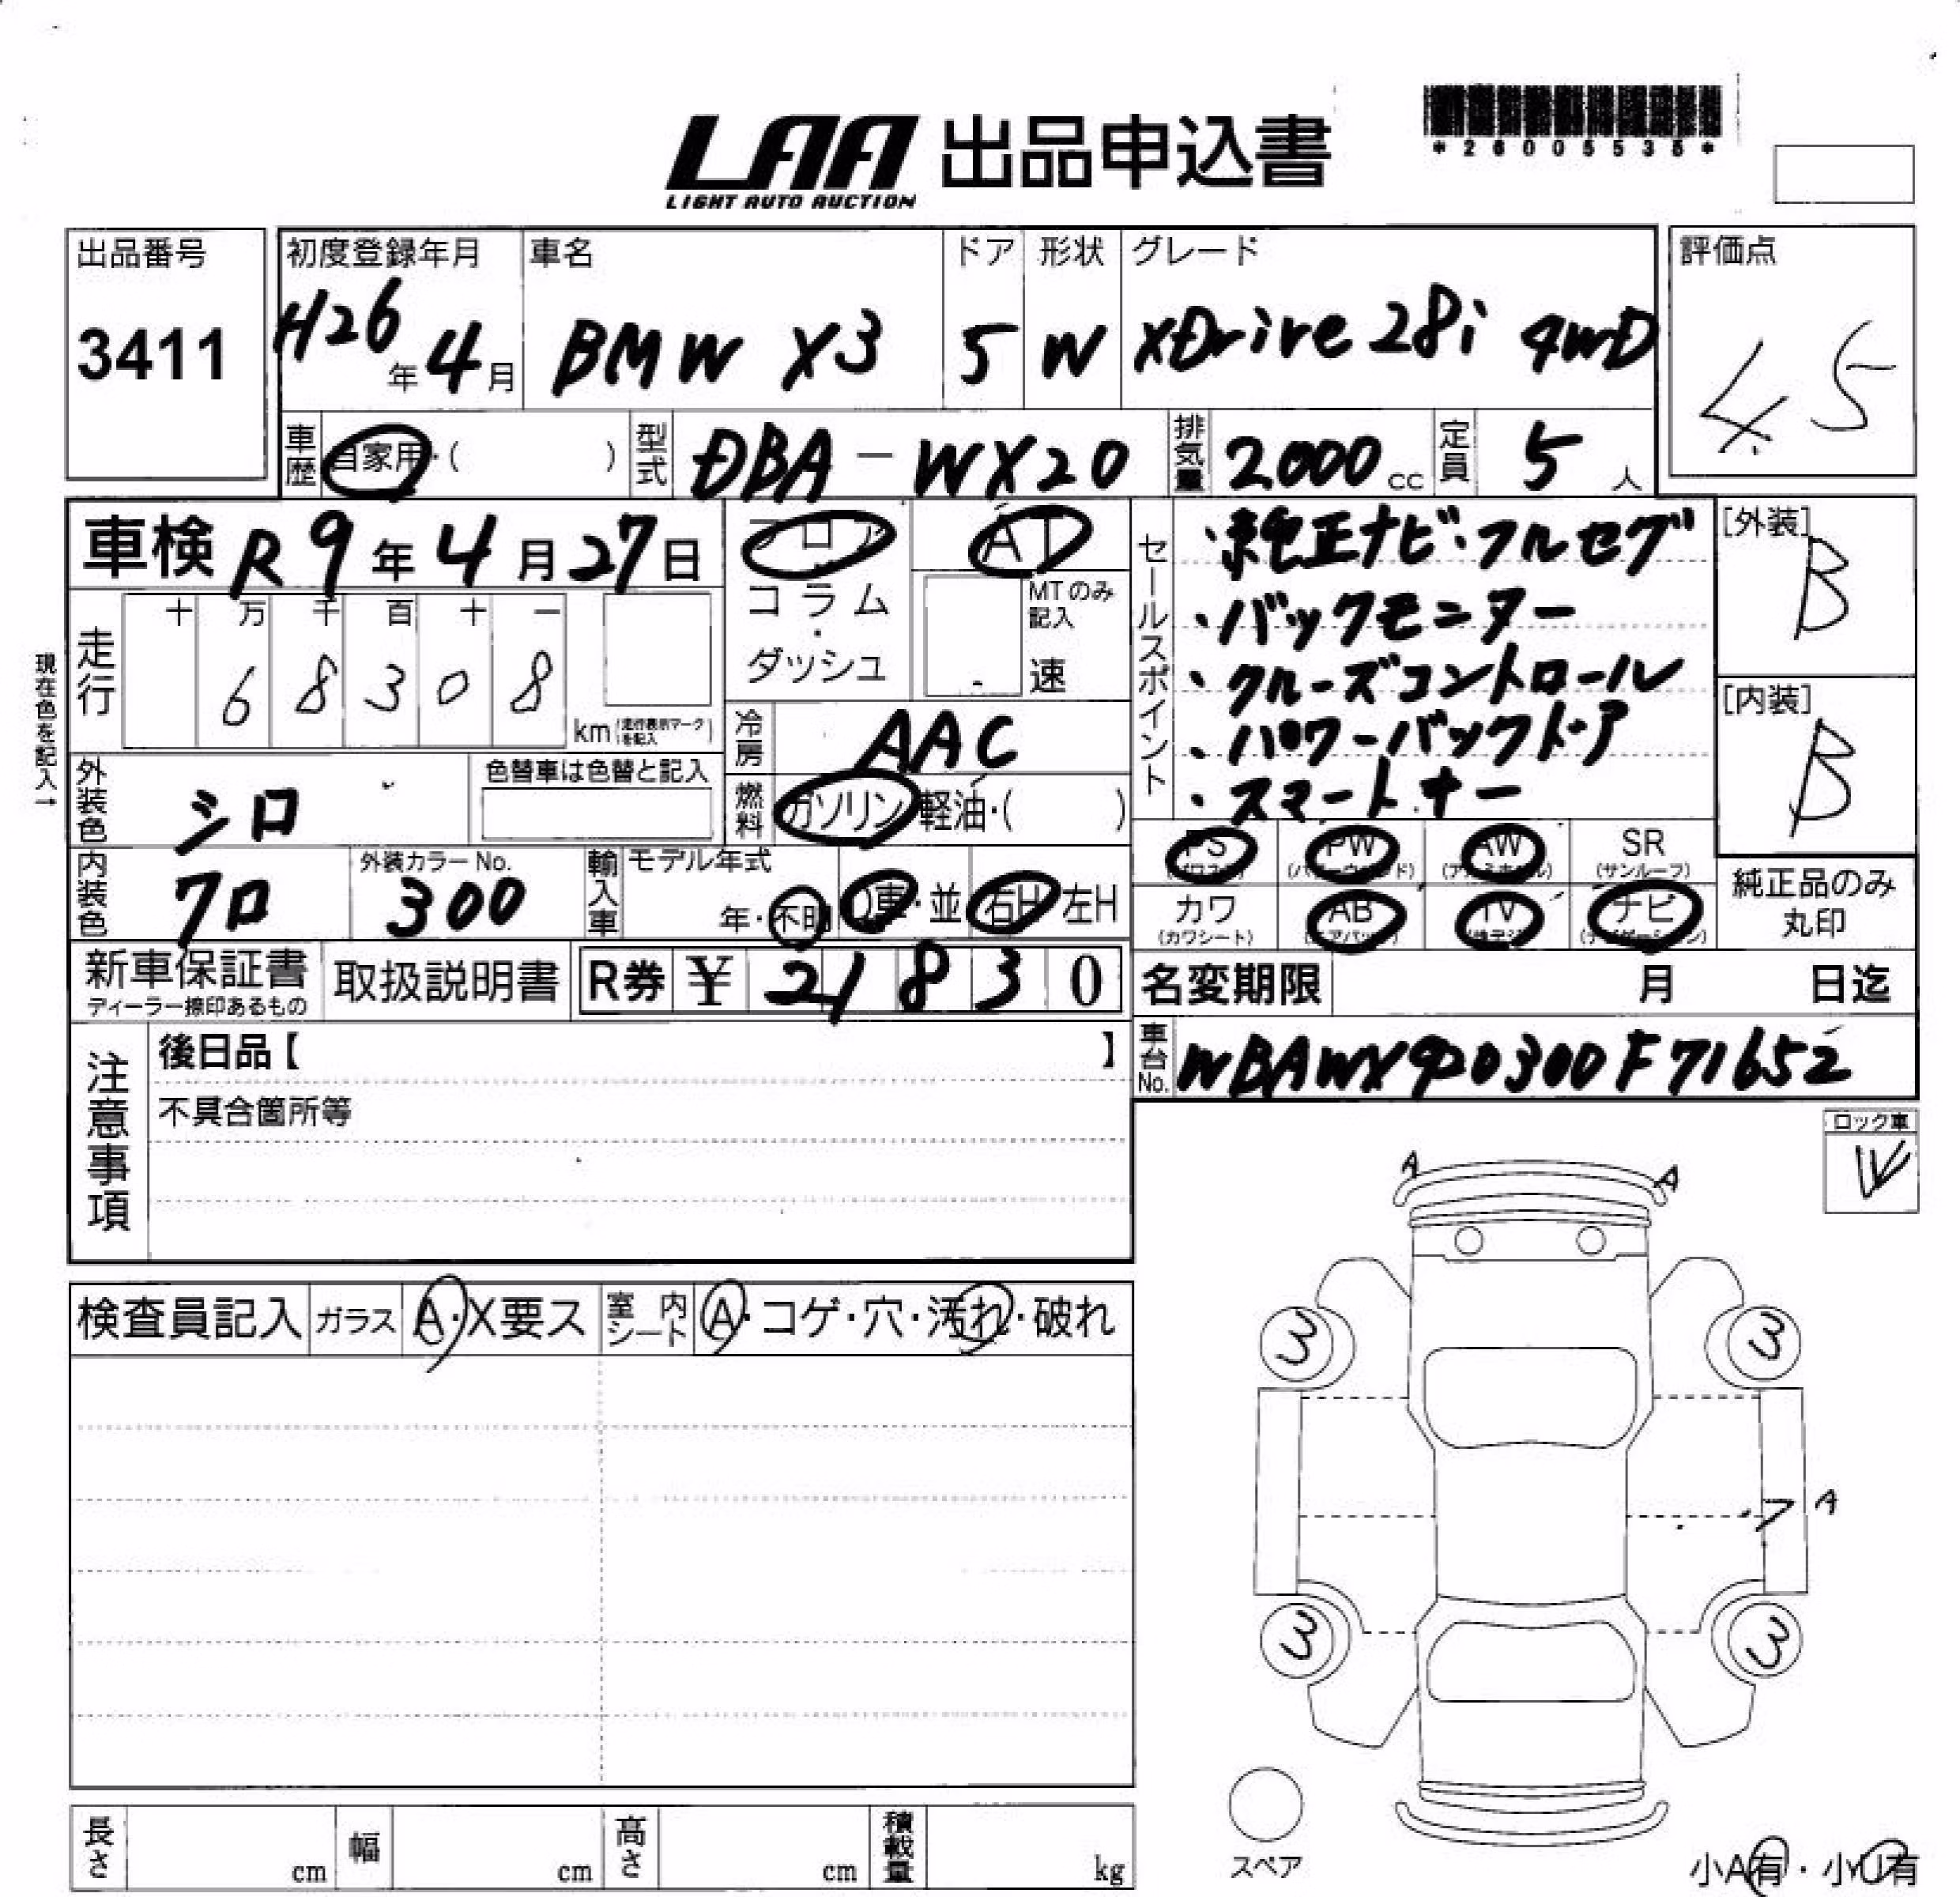 LAA 出品申込書
LIGHT AUTO AUCTION
*26005535*
出品番号 初度登録年月 車名 ドア 形状 グレード 評価点
3411 H26年4月 BMW X3 5 W XDrive28i 4WD 4.5
車歴 自家用・( ) 型式 DBA-WX20 排気量 2000cc 定員 5人
車検 R9年4月27日 フロア AT
コラム・ダッシュ MTのみ記入 速
走行 十 万 千 百 十 一
68308 km (走行表示マークを記入)
現在色を記入→
冷房 AAC
外装色 シロ 色替車は色替と記入
燃料 ガソリン 軽油・( )
内装色 クロ 外装カラーNo. 300 輸入車 モデル年式 年・不明 D車・並 右H 左H
セールスポイント
・純正ナビ・フルセグ
・バックモニター
・クルーズコントロール
・パワーバックドア
・スマートキー
[外装] B
[内装] B
PS (パワステ) PW (パワーウィンド) AW (アルミホイル) SR (サンルーフ)
カワ (カワシート) AB (エアバッグ) TV (地デジ) ナビ (ナビゲーション)
純正品のみ丸印
新車保証書 ディーラー捺印あるもの 取扱説明書 R券 ¥ 21830
名変期限 月 日迄
車台No. WBAWX920300F71652
注意事項 後日品【 】
不具合箇所等
ロック車 レ
検査員記入 ガラス A・X要ス 室内シート A・コゲ・穴・汚れ・破れ
A A
3 3
A
3 3
スペア
小A有・小U有
長さ cm 幅 cm 高さ cm 積載量 kg